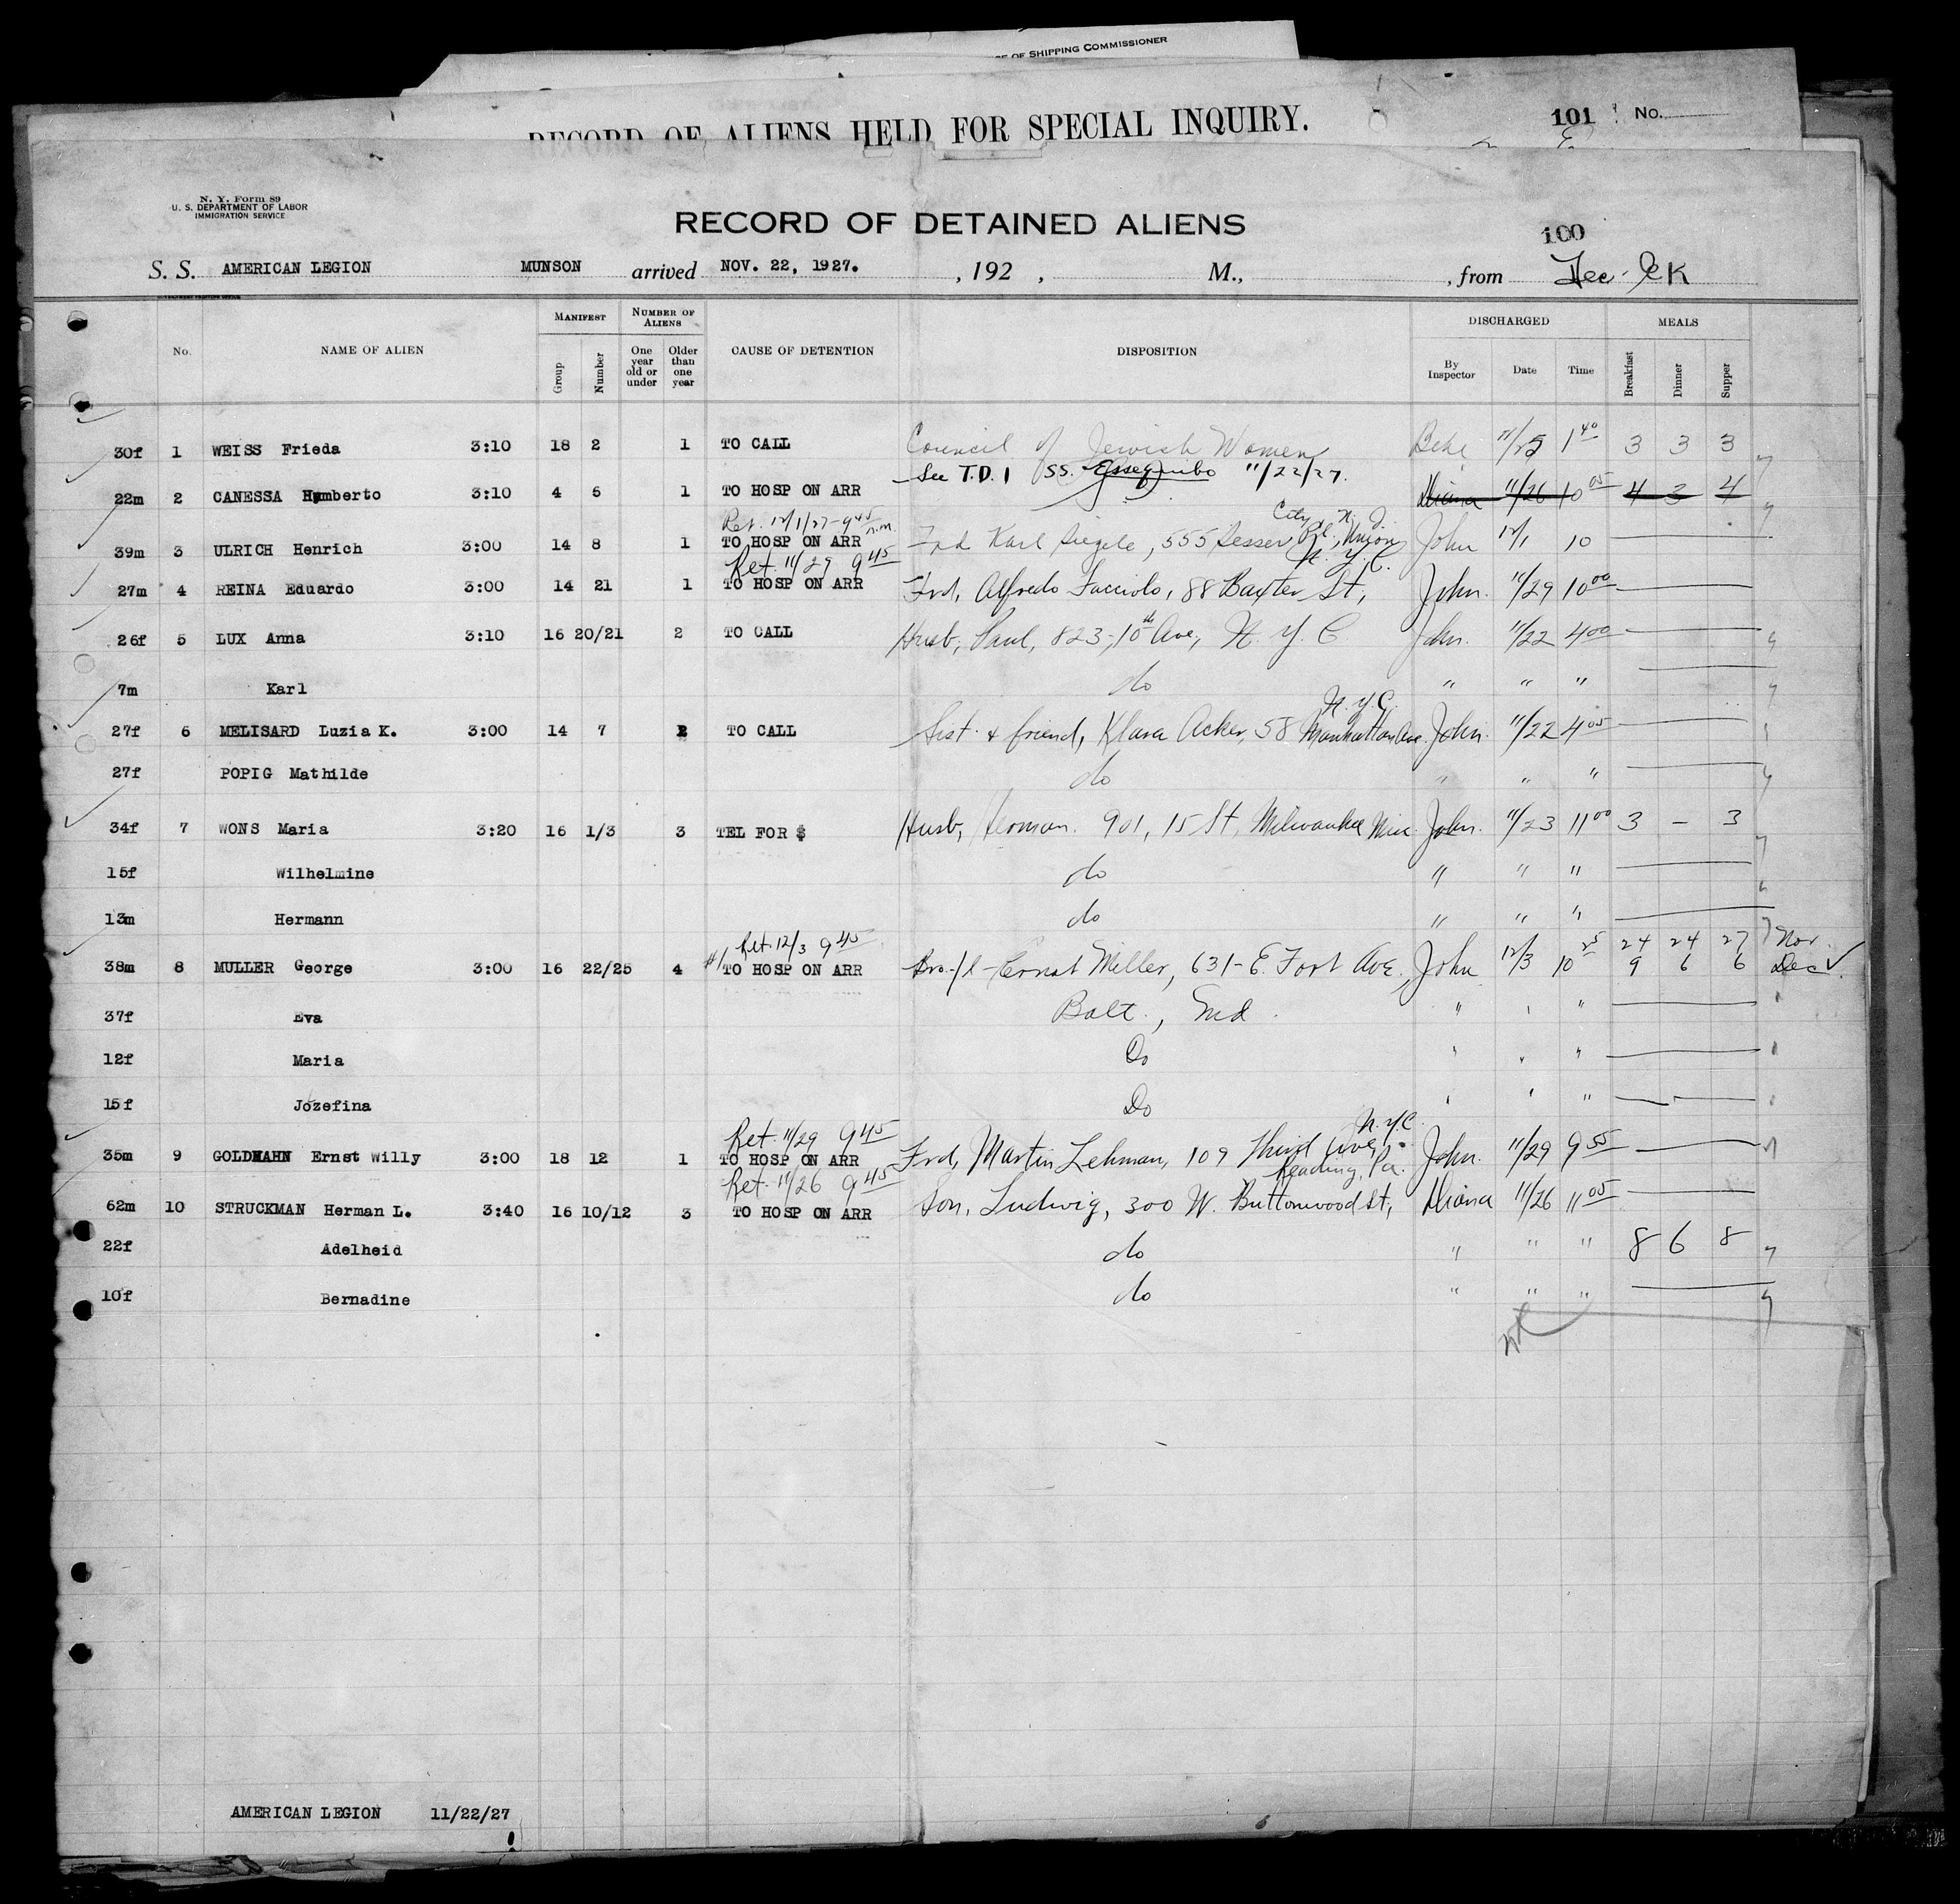 OF SHIPPING COMMISSIONER
RECORD OF ALIENS HELD FOR SPECIAL INQUIRY.
101 No.
N. Y. Form 89
U. S. DEPARTMENT OF LABOR
IMMIGRATION SERVICE
RECORD OF DETAINED ALIENS
100
S. S. AMERICAN LEGION MUNSON arrived NOV. 22, 1927. , 192 , M., , from
No. NAME OF ALIEN MANIFEST Group Number NUMBER OF ALIENS One year old or under Older than one year CAUSE OF DETENTION DISPOSITION DISCHARGED By Inspector Date Time MEALS Breakfast Dinner Supper
30f 1 WEISS Frieda 3:10 18 2 1 TO CALL Council of Jewish Women 11/25 1 40 3 3 3
See T.D. 1 SS. Essequibo 11/22/27.
22m 2 CANESSA Humberto 3:10 4 6 1 TO HOSP ON ARR Diana 11/26 10 05 4 3 4
Ret. 12/1/27 - 9 45 a.m. City, N. J.
39m 3 ULRICH Henrich 3:00 14 8 1 TO HOSP ON ARR Frd Karl Siegele, 555 Lesser Pl., Union John 12/1 10
Ret. 11/29 9 45 N. Y. C.
27m 4 REINA Eduardo 3:00 14 21 1 TO HOSP ON ARR Frd, Alfredo Facciolo, 88 Baxter St, John. 11/29 10 00
26f 5 LUX Anna 3:10 16 20/21 2 TO CALL Husb, Paul, 823-10th Ave, N. Y. C John. 11/22 4 00
7m Karl do " " "
N. Y. C.
27f 6 MELISARD Luzia K. 3:00 14 7 2 TO CALL Sist. & friend, Klara Acker, 58 Manhattan Ave John. 11/22 4 05
27f POPIG Mathilde do " " "
34f 7 WONS Maria 3:20 16 1/3 3 TEL FOR $ Husb, Herman. 901, 15 St, Milwaukee John. 11/23 11 00 3 - 3
15f Wilhelmine do " " "
13m Hermann do " " "
Ret. 12/3 9 45 24 24 27 Nov.
38m 8 MULLER George 3:00 16 22/25 4 #1 TO HOSP ON ARR Bro-/l - Ernst Miller, 631 - E. Fort Ave, John 12/3 10 25 9 6 6 Dec
37f Eva Balt., Md. " " "
12f Maria Do " " "
15f Jozefina Do " " "
Ret. 11/29 9 45 N.Y.C.
35m 9 GOLDMANN Ernst Willy 3:00 18 12 1 TO HOSP ON ARR Frd, Martin Lehman, 109 Third Ave, John. 11/29 9 55
Ret. 11/26 9 45 Reading, Pa.
62m 10 STRUCKMAN Herman L. 3:40 16 10/12 3 TO HOSP ON ARR Son, Ludwig, 300 W. Buttonwood St, Diana 11/26 11 05
22f Adelheid do " " " 8 6 8
10f Bernadine do " " "
AMERICAN LEGION 11/22/27